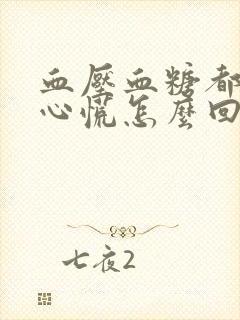 血壓血糖都
心慌怎麼回
七夜2